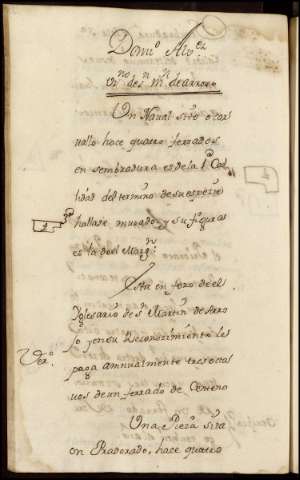 Domº Alvez
Vnº des n Mn de arroxo
Vn Naval sito o car
vallo hace quatro ferrados
en sembradura es de la 1ª Cal
lidad del termino de su especie
hallase murado, y su figura
es la del Margn
Esta en foro de el
Yglesario de Sn Martin de Arro
jo y en su Reconocimiento les
paga annualmente tres octa
vos de un ferrado de Centeno
Una Pieza sita
en Pradorado, hace quatro